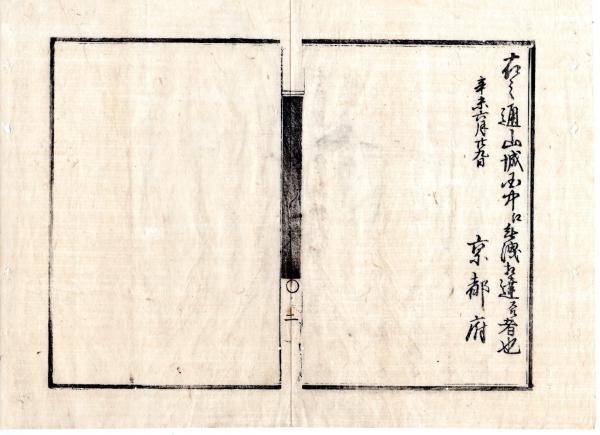 右之通山城国中江無洩相達る者也
辛未六月廿九日
京都府
二